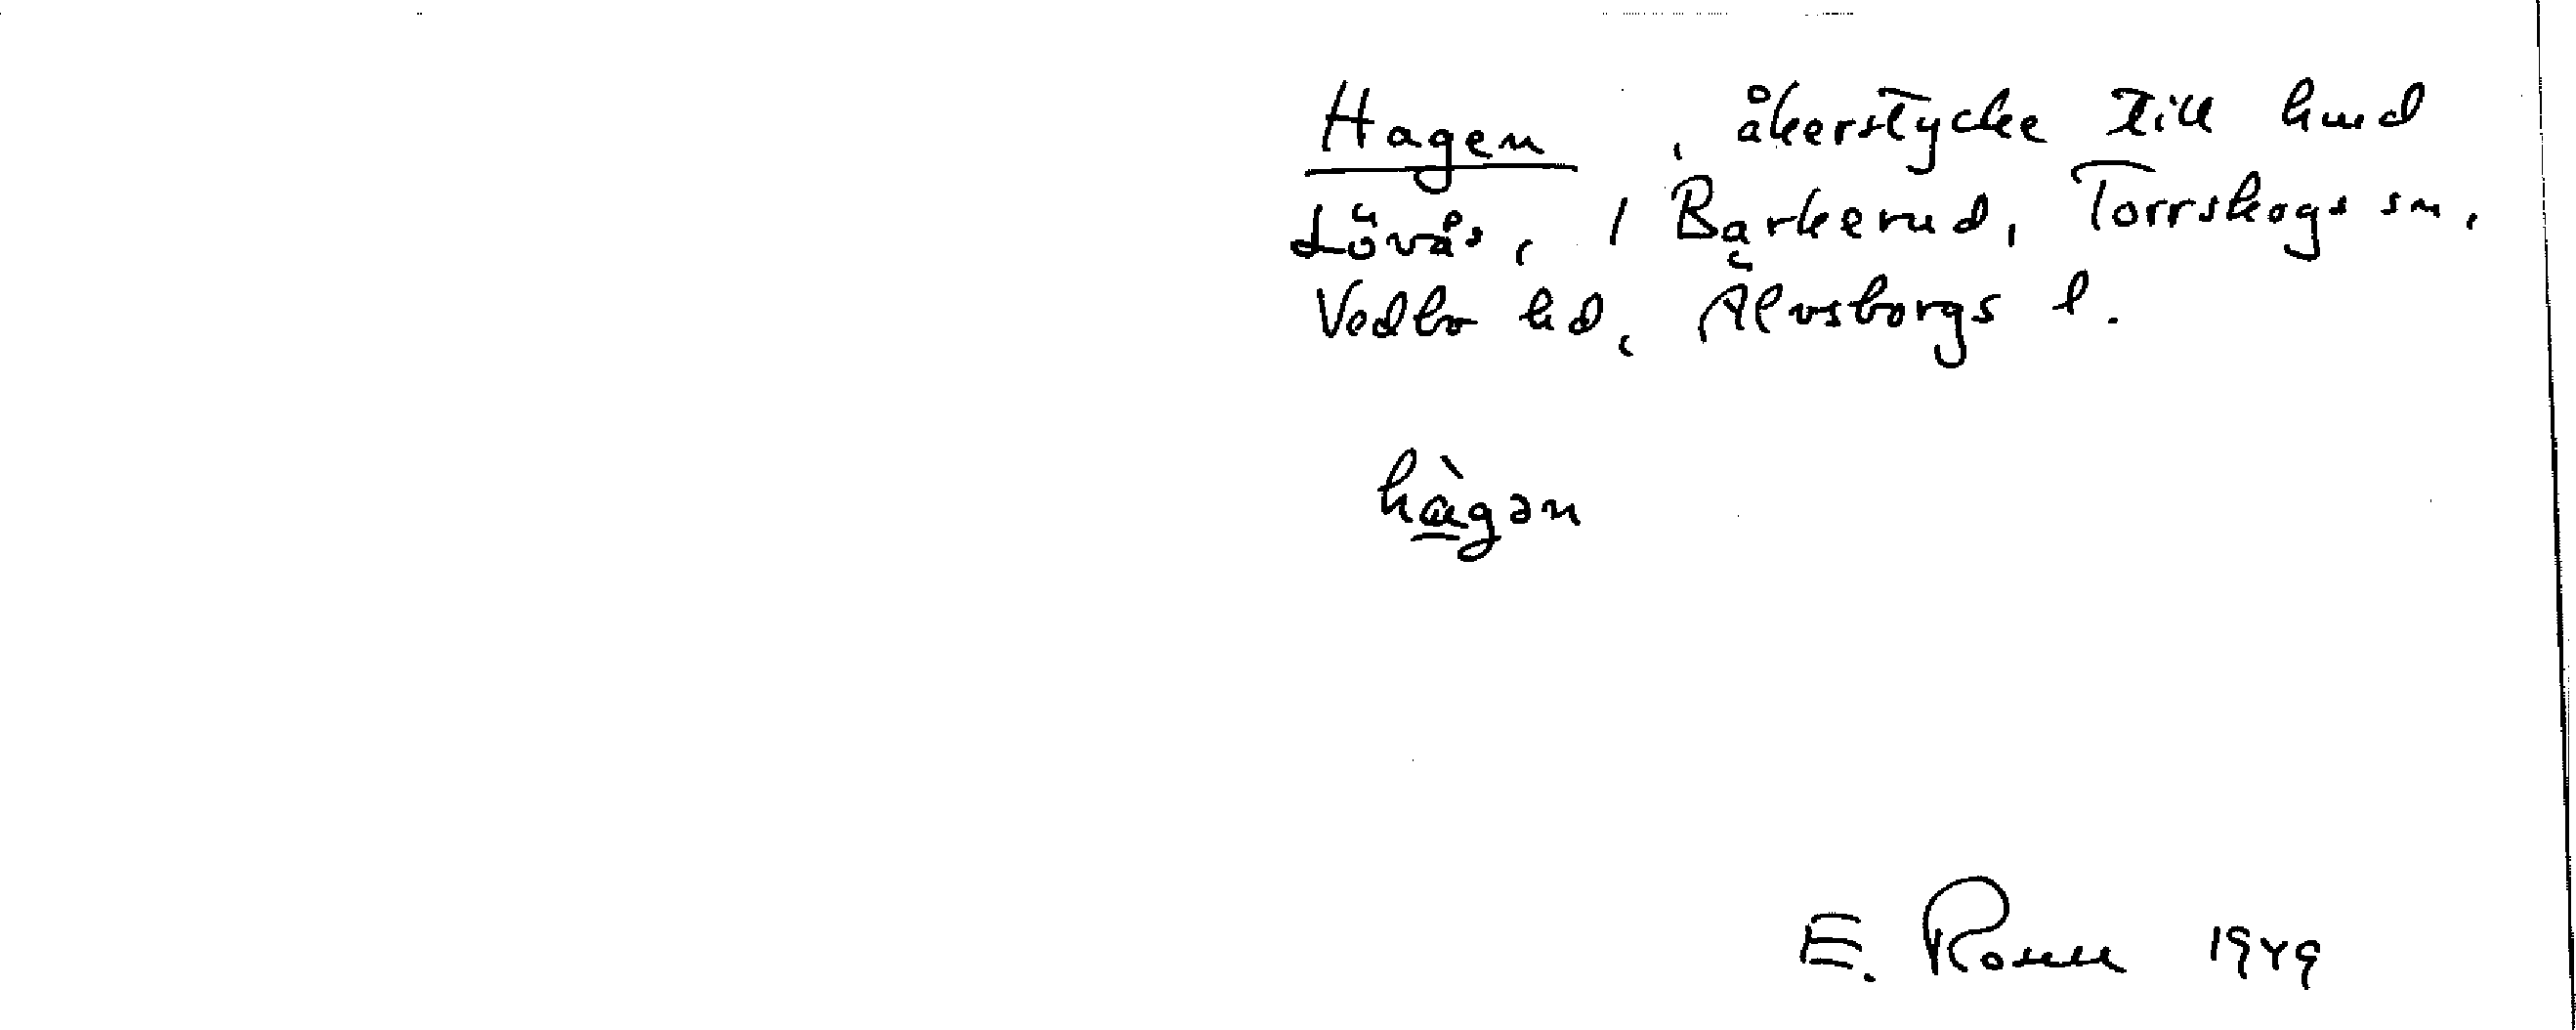 Hagen, åkerstycke till hmd
Lövås, 1 Barkerud, Torrskogs sn,
Vedbo hd, Älvsborgs l.
hàgən
E. 1949